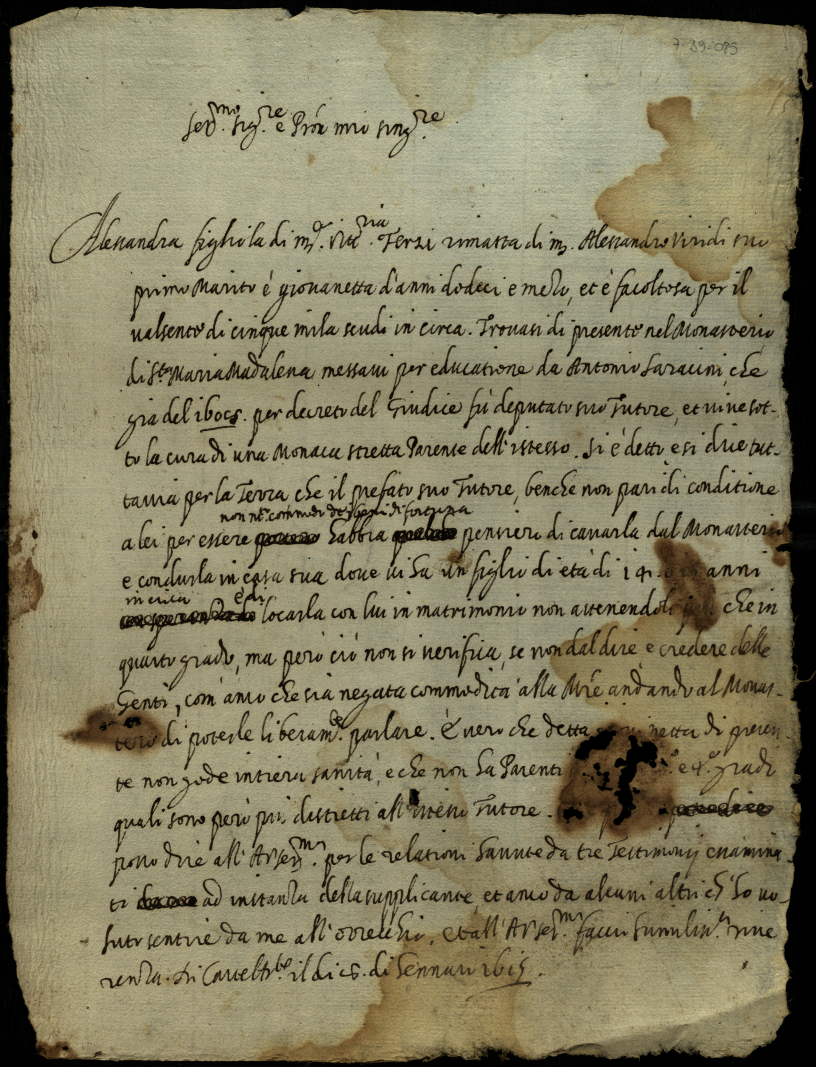 7-39-085
Ser.mo Sig.re e Pron mio sing.re
Alessandra figliola di m.a Vitt.ria Terzi rimasta di m. Alessandro Viridi suo
primo Marito è giovanetta d'anni dodeci e mezo, et è facoltosa per il
valsente di cinque mila scudi in circa. Trovasi di presente nel Monasterio
di S.ta Maria Madalena messavi per educatione da Antonio Saracini, che
gia del per decreto del Giudice fù deputato suo Tutore, et vive sot-
to la cura di una Monaca stretta Parente dell'istesso. Si è detto e si dice tut-
tavia per la Terra che il prefato suo Tutore, benche non pari di conditione
non m.to commodo de beni di fortuna
a lei per essere habbia pensiero di cavarla dal Monasterio
e condurla in casa sua dove vi ha un figlio di età di 14 anni
in circa e di
locarla con lui in matrimonio non attenendole che in
quarto grado, ma però ciò non si verifica, se non dal dire e credere delle
Genti, com'anco che sia negata commodità alla M.re andando al Monas-
tero di poterle liberam.te parlare. È vero che detta giovinetta di presen-
te non gode intiera sanità, e che non ha Parenti e 4.o grado
quali sono però più distretti all'istesso Tutore.
posso dire all'A.V. Ser.ma per le relationi havute da tre Testimonij essamina-
ti ad instanza della supplicante, et anco da alcuni altri ch'ho vo-
luto sentire da me all'orecchio, et all'A.V. Ser.ma faccio humiliss.a rive
renza. Di Castelb.to il di di Gennaro 1615.